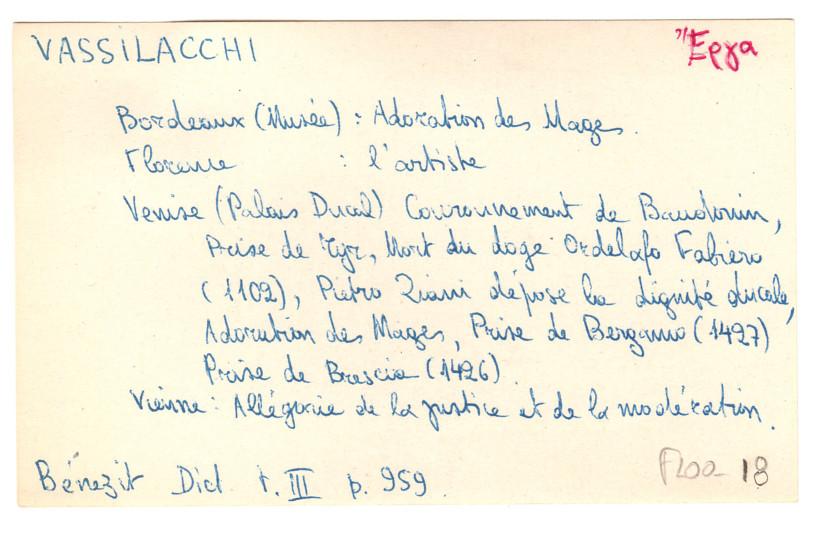 VASSILACCHI
Ἔργα
Bordeaux (Musée) : Adoration des Mages.
Florence : l'artiste
Venise (Palais Ducal) Couronnement de Baudouin,
Prise de Tyr, Mort du doge Ordelafo Fabiero
(1102), Pietro Ziani dépose la dignité ducale,
Adoration des Mages, Prise de Bergamo (1427)
Prise de Brescia (1426).
Vienne : Allégorie de la justice et de la modération.
Bénezit Dict t. III p. 959.
18